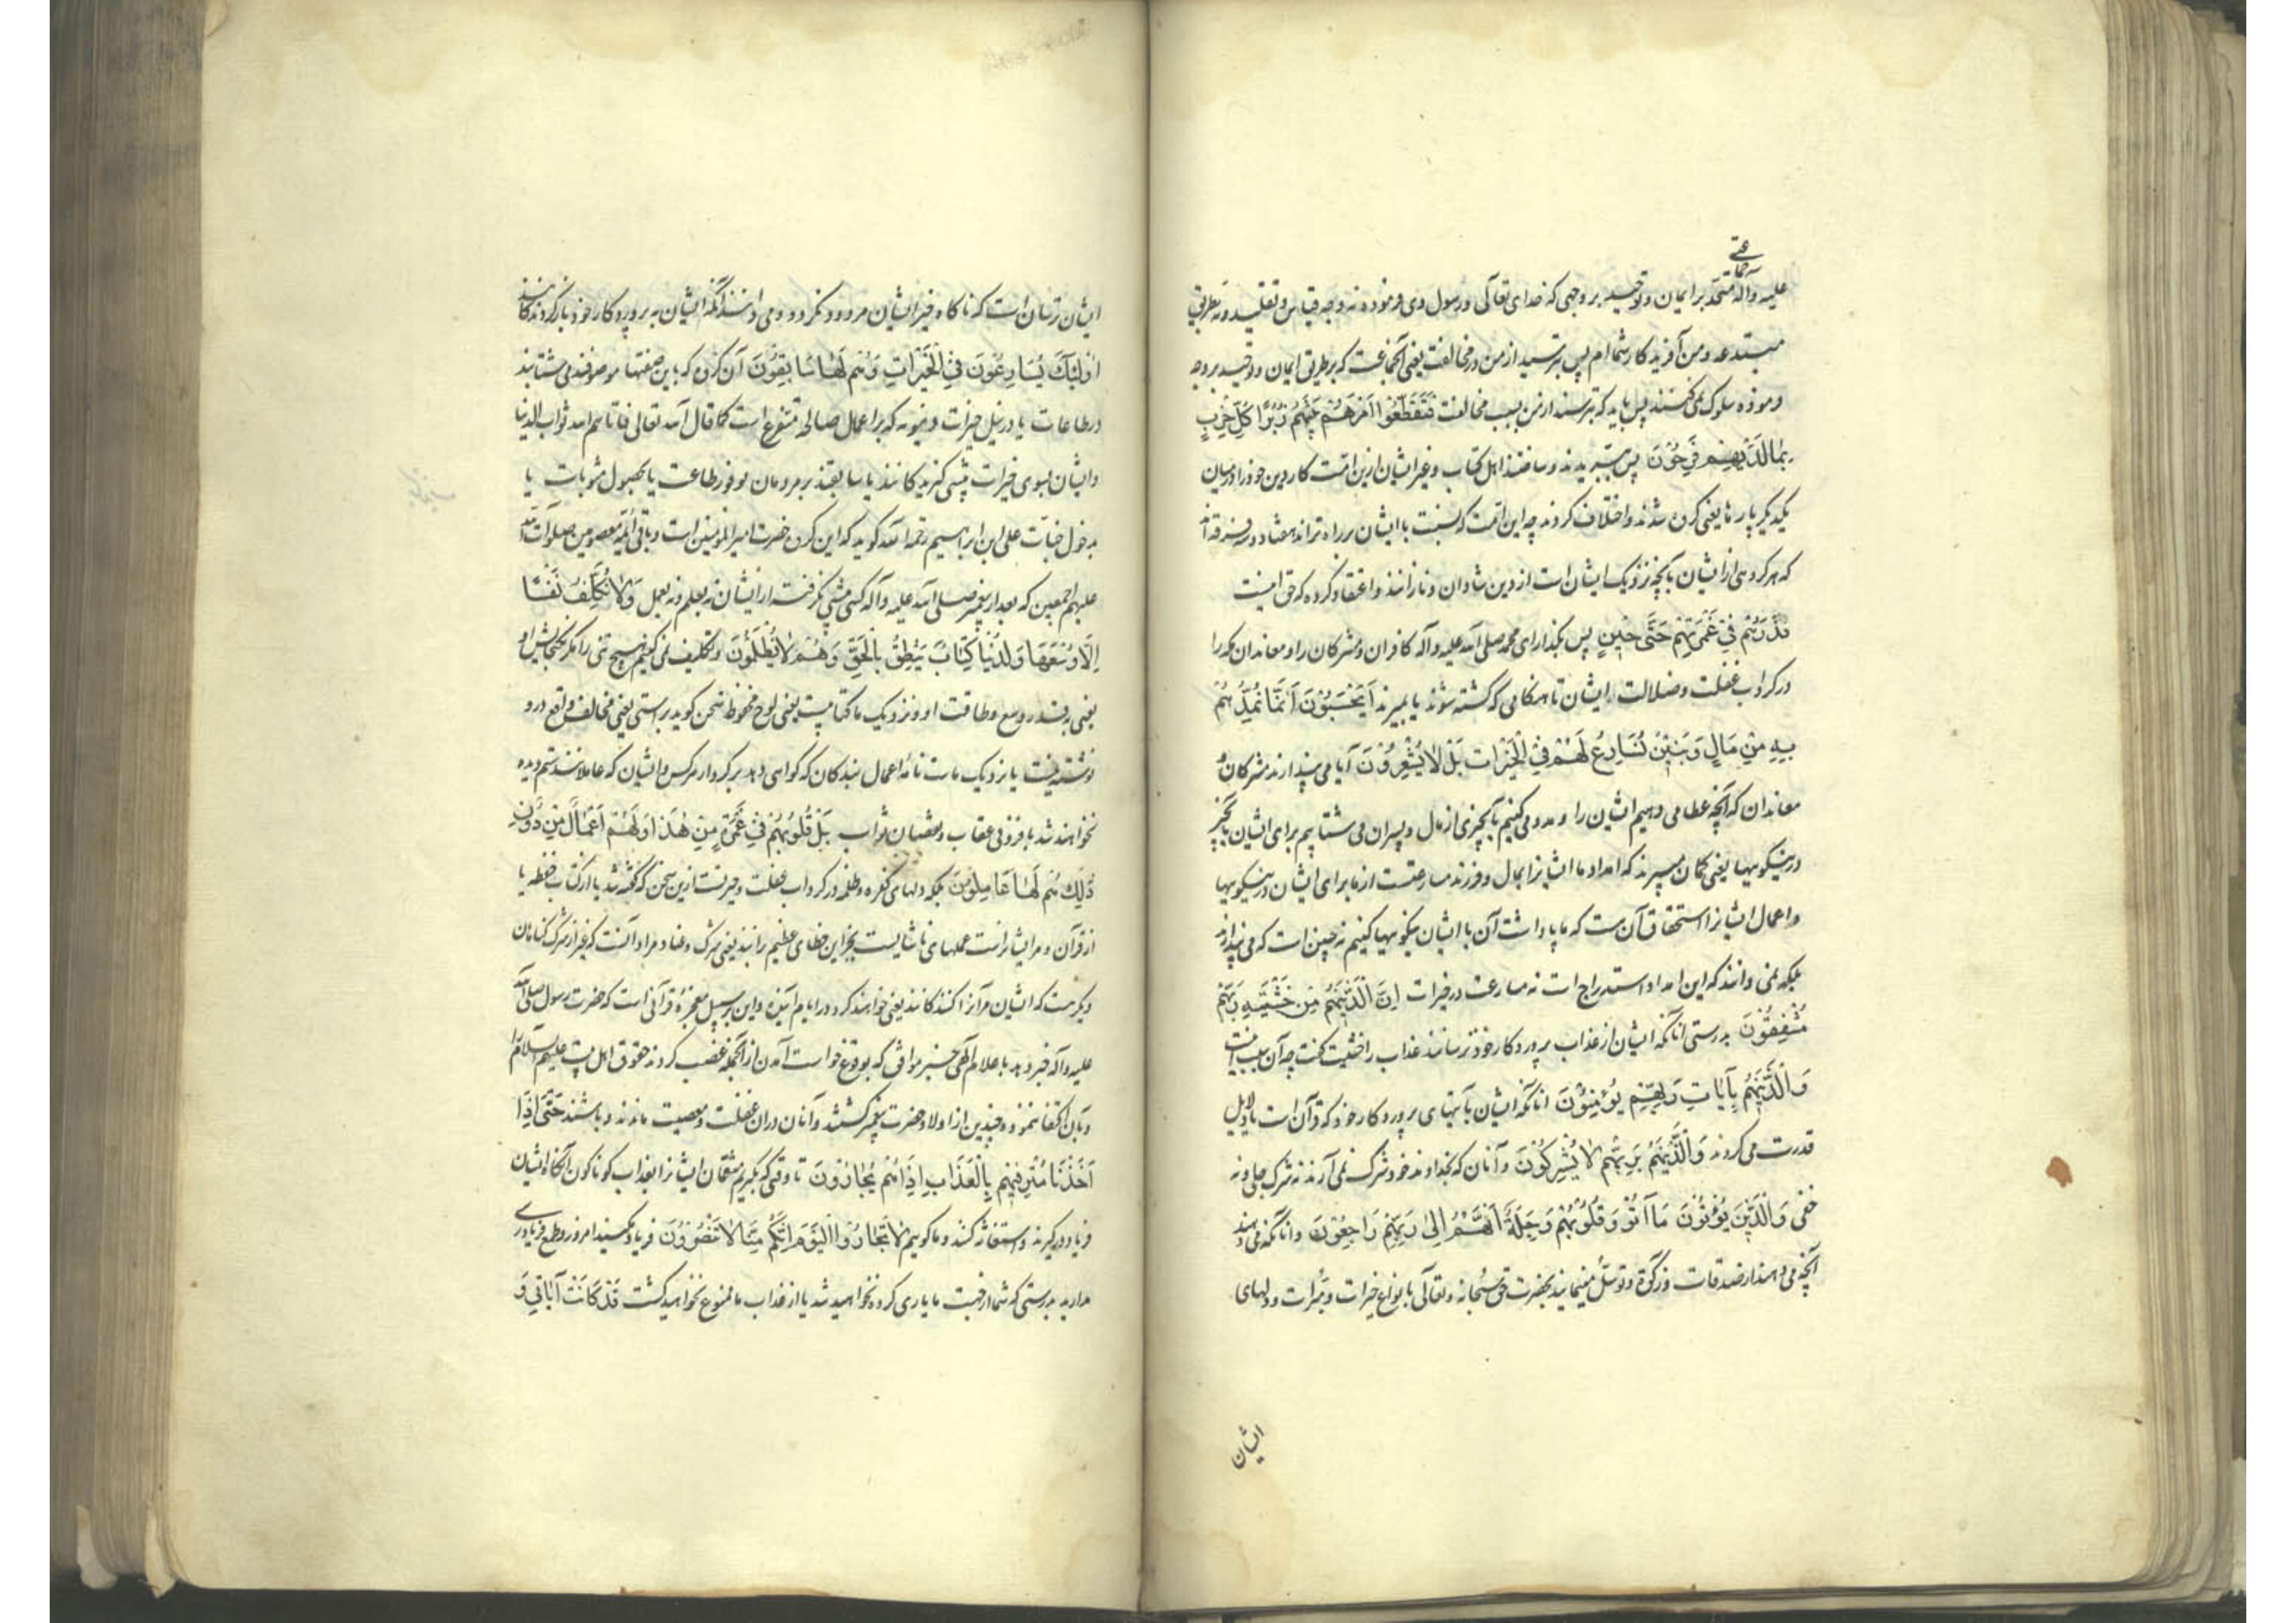 جماعتی
علیه وآله متحد بر ایمان و توحید بر وجهی که خدای تعالی ورسول وی فرموده نه وجه قیاس وتقلید ونه بطریق
مبتدعه ومن آفریدکار شما ام پس بترسید از من در مخالفت یعنی آنجماعت که بر طریق ایمان وتوحید بروجه
فرموده سلوک نمی کنند پس باید که بترسند از من بسبب مخالفت فَتَقَطَّعُوا اَمْرَهُمْ بَیْنَهُمْ زُبُرًا کُلُّ حِزْبٍ
بِمَا لَدَیْهِمْ فَرِحُوْنَ پس ببریدند وساختند اهل کتاب وغیر ایشان ازین امت کار دین خود را درمیان
یکدیکر پارها یعنی کروه شدند واختلاف کردند چه این امت که نسبت با ایشان برراه تراند هفتاد وسه فرقه اند
که هر کروهی از ایشان بآنچه نزدیک ایشان است از دین شادان ونازانند واعتقاد کرده که حق اینست
فَذَرْهُمْ فِیْ غَمْرَتِهِمْ حَتّٰی حِیْنٍ پس بگذار ای محمد صلی الله علیه وآله کافران ومشرکان را ومعاندان مکه را
در کرداب غفلت وضلالت ایشان تا هنکامی که کشته شوند یا بمیرند اَیَحْسَبُوْنَ اَنَّمَا نُمِدُّهُمْ
بِهٖ مِنْ مَالٍ وَبَنِیْنَ نُسَارِعُ لَهُمْ فِی الْخَیْرَاتِ بَلْ لَا یَشْعُرُوْنَ آیا می پندارند مشرکان و
معاندان که آنچه عطا می دهیم ایشان را ومدد می کنیم بآنچیزی از مال وپسران می شتابیم برای ایشان بآنچیز
در نیکوییها یعنی کمان میبرند که امداد ما ایشانرا بمال وفرزند مسارعتست از ما برای ایشان در نیکوییها
واعمال ایشانرا استحقاق آن هست که ما پاداشت آن با ایشان نیکوییها کنیم نه چنین است که می پندارند
بلکه نمی دانند که این امداد استدراج است نه مسارعت در خیرات اِنَّ الَّذِیْنَ هُمْ مِنْ خَشْیَةِ رَبِّهِمْ
مُشْفِقُوْنَ بدرستی آنانکه ایشان از عذاب پروردکار خود ترسانند عذاب را خشیت کفت چه آن سبب اینست
وَالَّذِیْنَ هُمْ بِاٰیَاتِ رَبِّهِمْ یُؤْمِنُوْنَ آنانکه ایشان بآیتهای پروردکار خود که قرآن است یا دلایل
قدرت می کروند وَالَّذِیْنَ هُمْ بِرَبِّهِمْ لَا یُشْرِکُوْنَ وآنان که بخداوند خود شرک نمی آرند نه شرک جلی ونه
خفی وَالَّذِیْنَ یُؤْتُوْنَ مَا اٰتَوْا وَقُلُوْبُهُمْ وَجِلَةٌ اَنَّهُمْ اِلٰی رَبِّهِمْ رَاجِعُوْنَ وآنانکه می دهند
آنچه می دهند از صدقات وزکوة وتوسل مینمایند بحضرت حق سبحانه وتعالی بانواع خیرات ومبرات ودلهای
ایشان
ایشان ترسان است که ناکاه خیر ایشان مردود نکردد ومی دانند آنکه ایشان به پروردکار خود بازکردندکانند
اُولٰئِکَ یُسَارِعُوْنَ فِی الْخَیْرَاتِ وَهُمْ لَهَا سَابِقُوْنَ آن کروه که باین صفتها موصوفند می شتابند
در طاعات یا در نیل خیرات دنیویه که بر اعمال صالحه متفرع است کما قال الله تعالی فاتاهم الله ثواب الدنیا
وایشان بسوی خیرات پیشی کیرندکانند یا سابقند بر مردمان بوفور طاعت یا بحصول مثوبات یا
بدخول جنات علی ابن ابراهیم رحمه الله کوید که این کروه حضرت امیر المؤمنین است وباقی ائمه معصومین صلوات الله
علیهم اجمعین که بعد از پیغمبر صلی الله علیه وآله کسی پیشی نکرفته از ایشان نه بعلم ونه بعمل وَلَا نُکَلِّفُ نَفْسًا
اِلَّا وُسْعَهَا وَلَدَیْنَا کِتَابٌ یَنْطِقُ بِالْحَقِّ وَهُمْ لَا یُظْلَمُوْنَ وتکلیف نمی کنیم هیچ تنی را مکر کنجایش او
یعنی بقدر وسع وطاقت او ونزدیک ما کتابیست یعنی لوح محفوظ سخن کوید براستی یعنی مخالف واقع درو
نوشته نیست یا نزدیک ماست نامه اعمال بندکان که کواهی دهد بر کردار هرکس وایشان که عاملانند ستم دیده
نخواهند شد بافزونی عقاب ونقصان ثواب بَلْ قُلُوْبُهُمْ فِیْ غَمْرَةٍ مِنْ هٰذَا وَلَهُمْ اَعْمَالٌ مِنْ دُوْنِ
ذٰلِکَ هُمْ لَهَا عَامِلُوْنَ بلکه دلهای کفره وظلمه در کرداب غفلت وحیرتست ازین سخن که کفته شد یا از کتاب حفظه یا
از قرآن ومر ایشانراست عملهای ناشایست بجز این خطای عظیم را نیز یعنی شرک وعناد ومراد آنست که غیر از شرک کناهان
دیکر هست که ایشان مر آنرا کنندکانند یعنی خواهند کرد در ایام آینده واین بر سبیل معجزه قرآنی است که حضرت رسول صلی الله
علیه وآله خبر دهد باعلام الهی خبر موافق که بوقوع خواست آمدن از آنجمله غصب کردند حقوق اهل بیت علیهم السلام را
وبآن اکتفا ننمود وچندین از اولاد حضرت پیغمبر کشتند وآنان دران غفلت ومعصیت ماندند وباشند حَتّٰی اِذَا
اَخَذْنَا مُتْرَفِیْهِمْ بِالْعَذَابِ اِذَا هُمْ یَجْاَرُوْنَ تا وقتی که بکیریم متنعمان ایشانرا بعذاب کوناکون آنکاه ایشان
فریاد درکیرند واستغاثه کنند وما کوییم لَا تَجْاَرُوا الْیَوْمَ اِنَّکُمْ مِنَّا لَا تُنْصَرُوْنَ فریاد مکنید امروز وطمع فریادرسی
مدارید بدرستی که شما از قبیل ما یاری کرده نخواهید شد یا از عذاب ما ممنوع نخواهید کشت قَدْ کَانَتْ اٰیَاتِیْ وَ